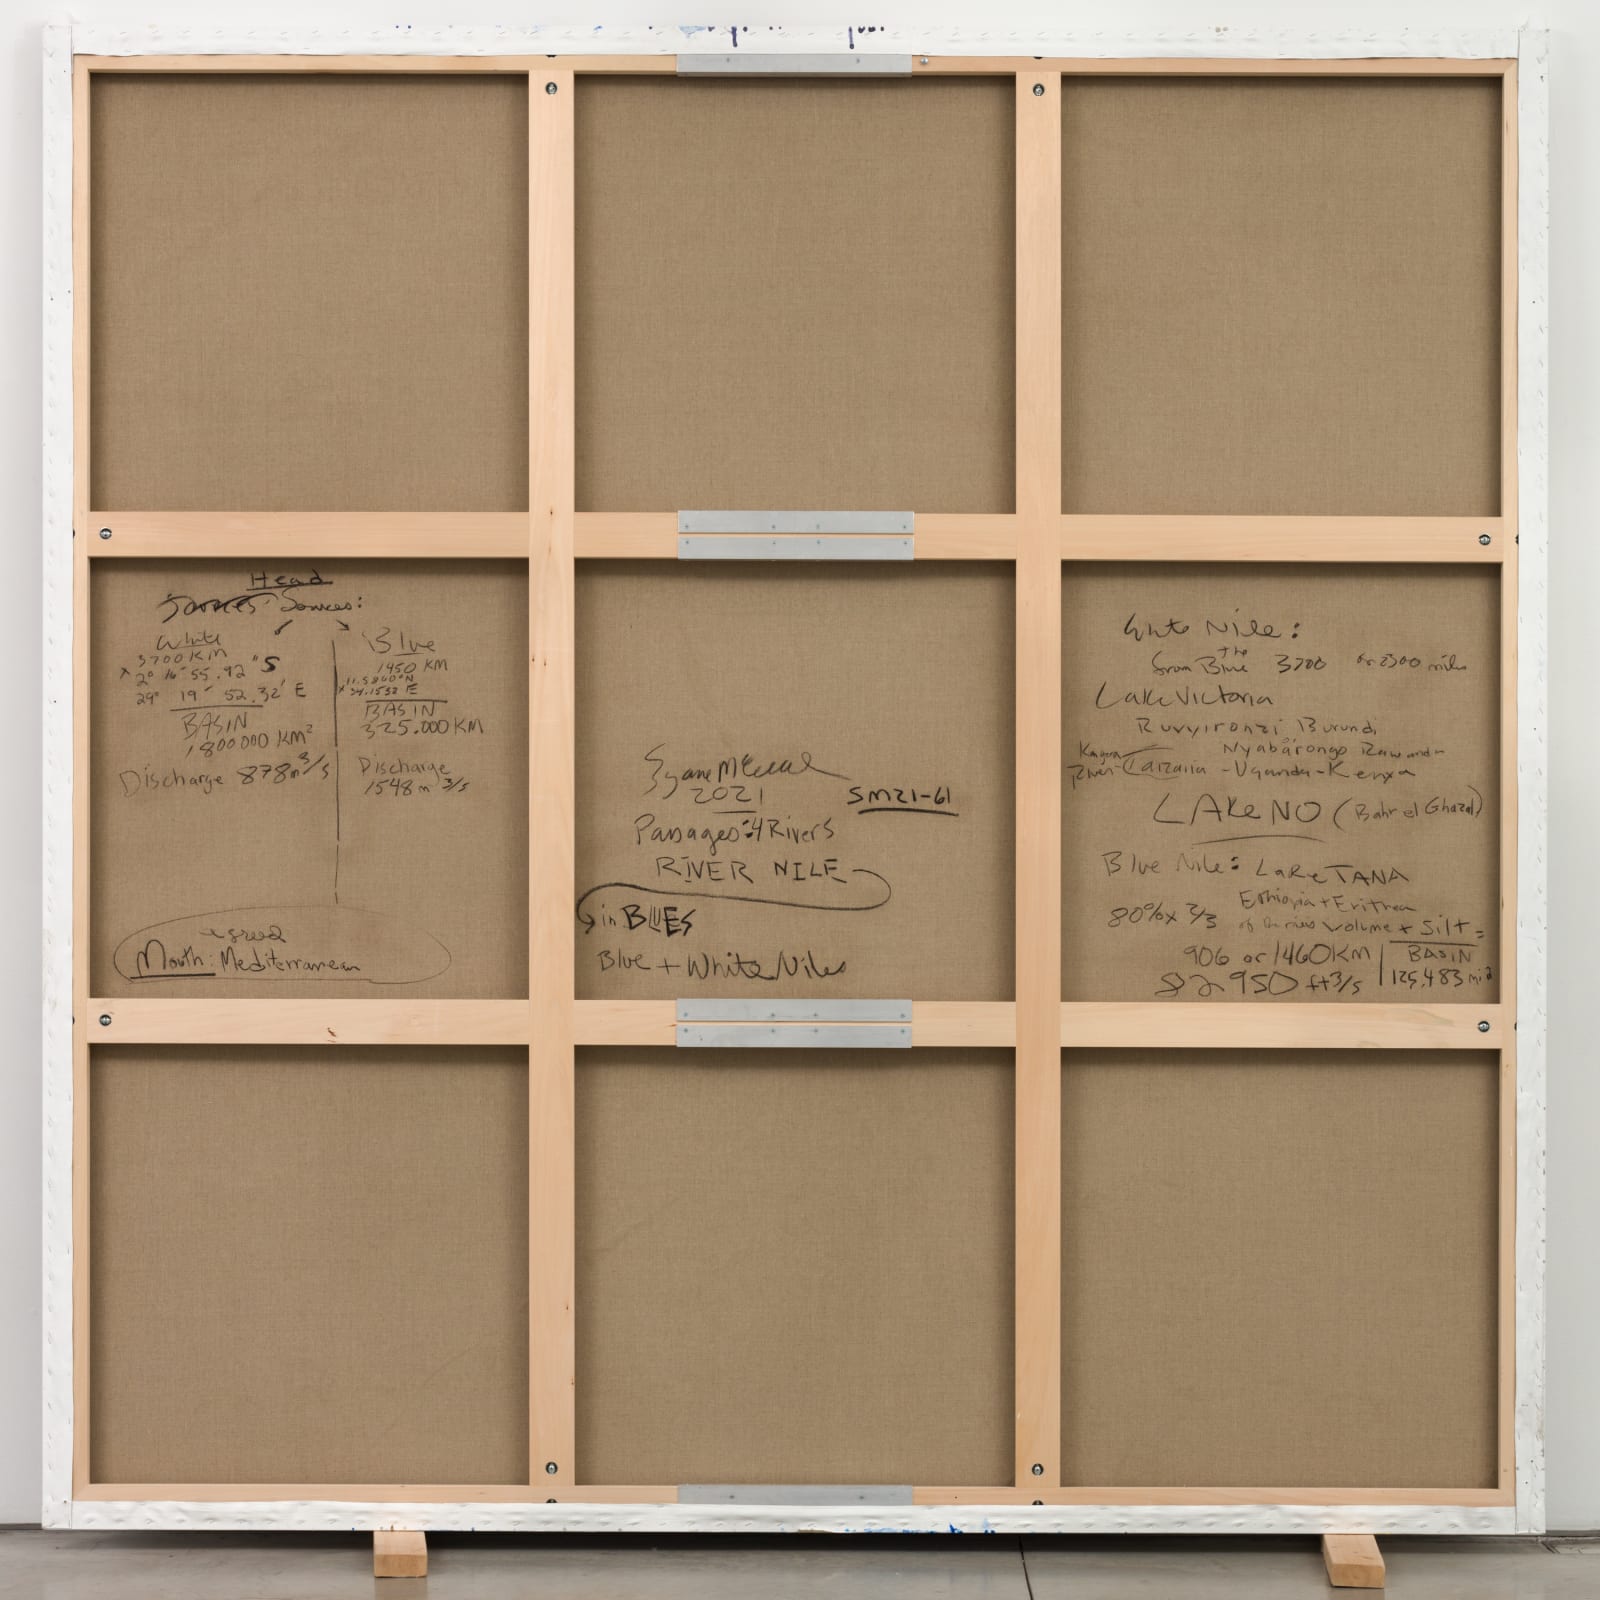 Head
Sources:
White
3700 KM
x 2° 16' 55.92 "S
29° 19' 52.32' E
BASIN
1,800000 KM²
Discharge 878 m³/s
Blue
1450 KM
x 34.1532 E
BASIN
325.000 KM
Discharge
1548 m³/s
Mouth: Mediterranean
2021
SM21-61
Passages: 4 Rivers
RIVER NILE
in BLUES
Blue + White Niles
White Nile:
from the Blue 3700 or 2300 miles
Lake Victoria
Ruvyironzi Burundi
Nyabarongo
Kagera
River - Tanzania - Uganda - Kenya
LAKE NO (Bahr el Ghazal)
Blue Nile: Lake TANA
Ethiopia + Eritrea
80% x 2/3 of the rivers volume + silt =
906 or 1460KM
82950 ft3/s
BASIN
125,483 mi2